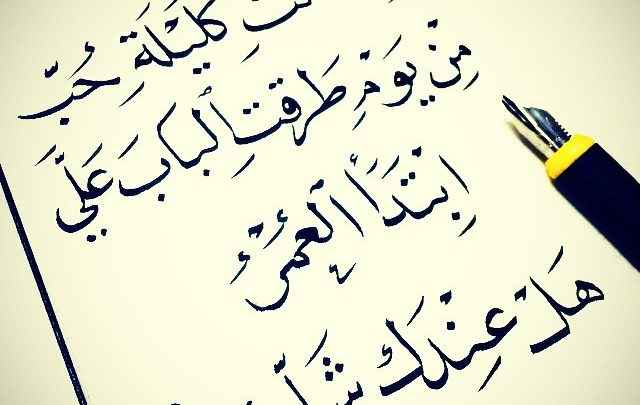 كَلَيْلَةِ حُبّ
مِنْ يَوْمِ طَرَقْتِ ٱلْبَابَ عَلَيَّ
ٱبْتَدَأَ ٱلْعُمْرُ
هَلْ عِنْدَكَ